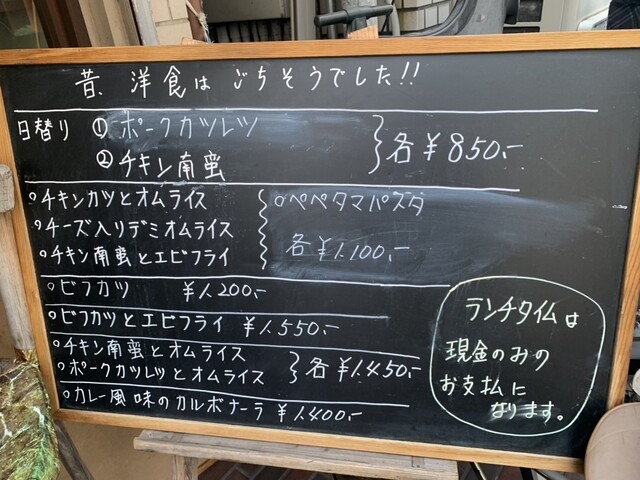 昔、洋食は ごちそうでした!!
日替り ①ポークカツレツ
②チキン南蛮
各￥850,-
○チキンカツとオムライス
○チーズ入りデミオムライス
○チキン南蛮とエビフライ
○ペペタマパスタ
各￥1,100,-
○ビフカツ ￥1,200,-
○ビフカツとエビフライ ￥1,550,-
○チキン南蛮とオムライス
○ポークカツレツとオムライス
各￥1,450,-
○カレー風味のカルボナーラ ￥1,400,-
ランチタイムは
現金のみの
お支払に
なります。